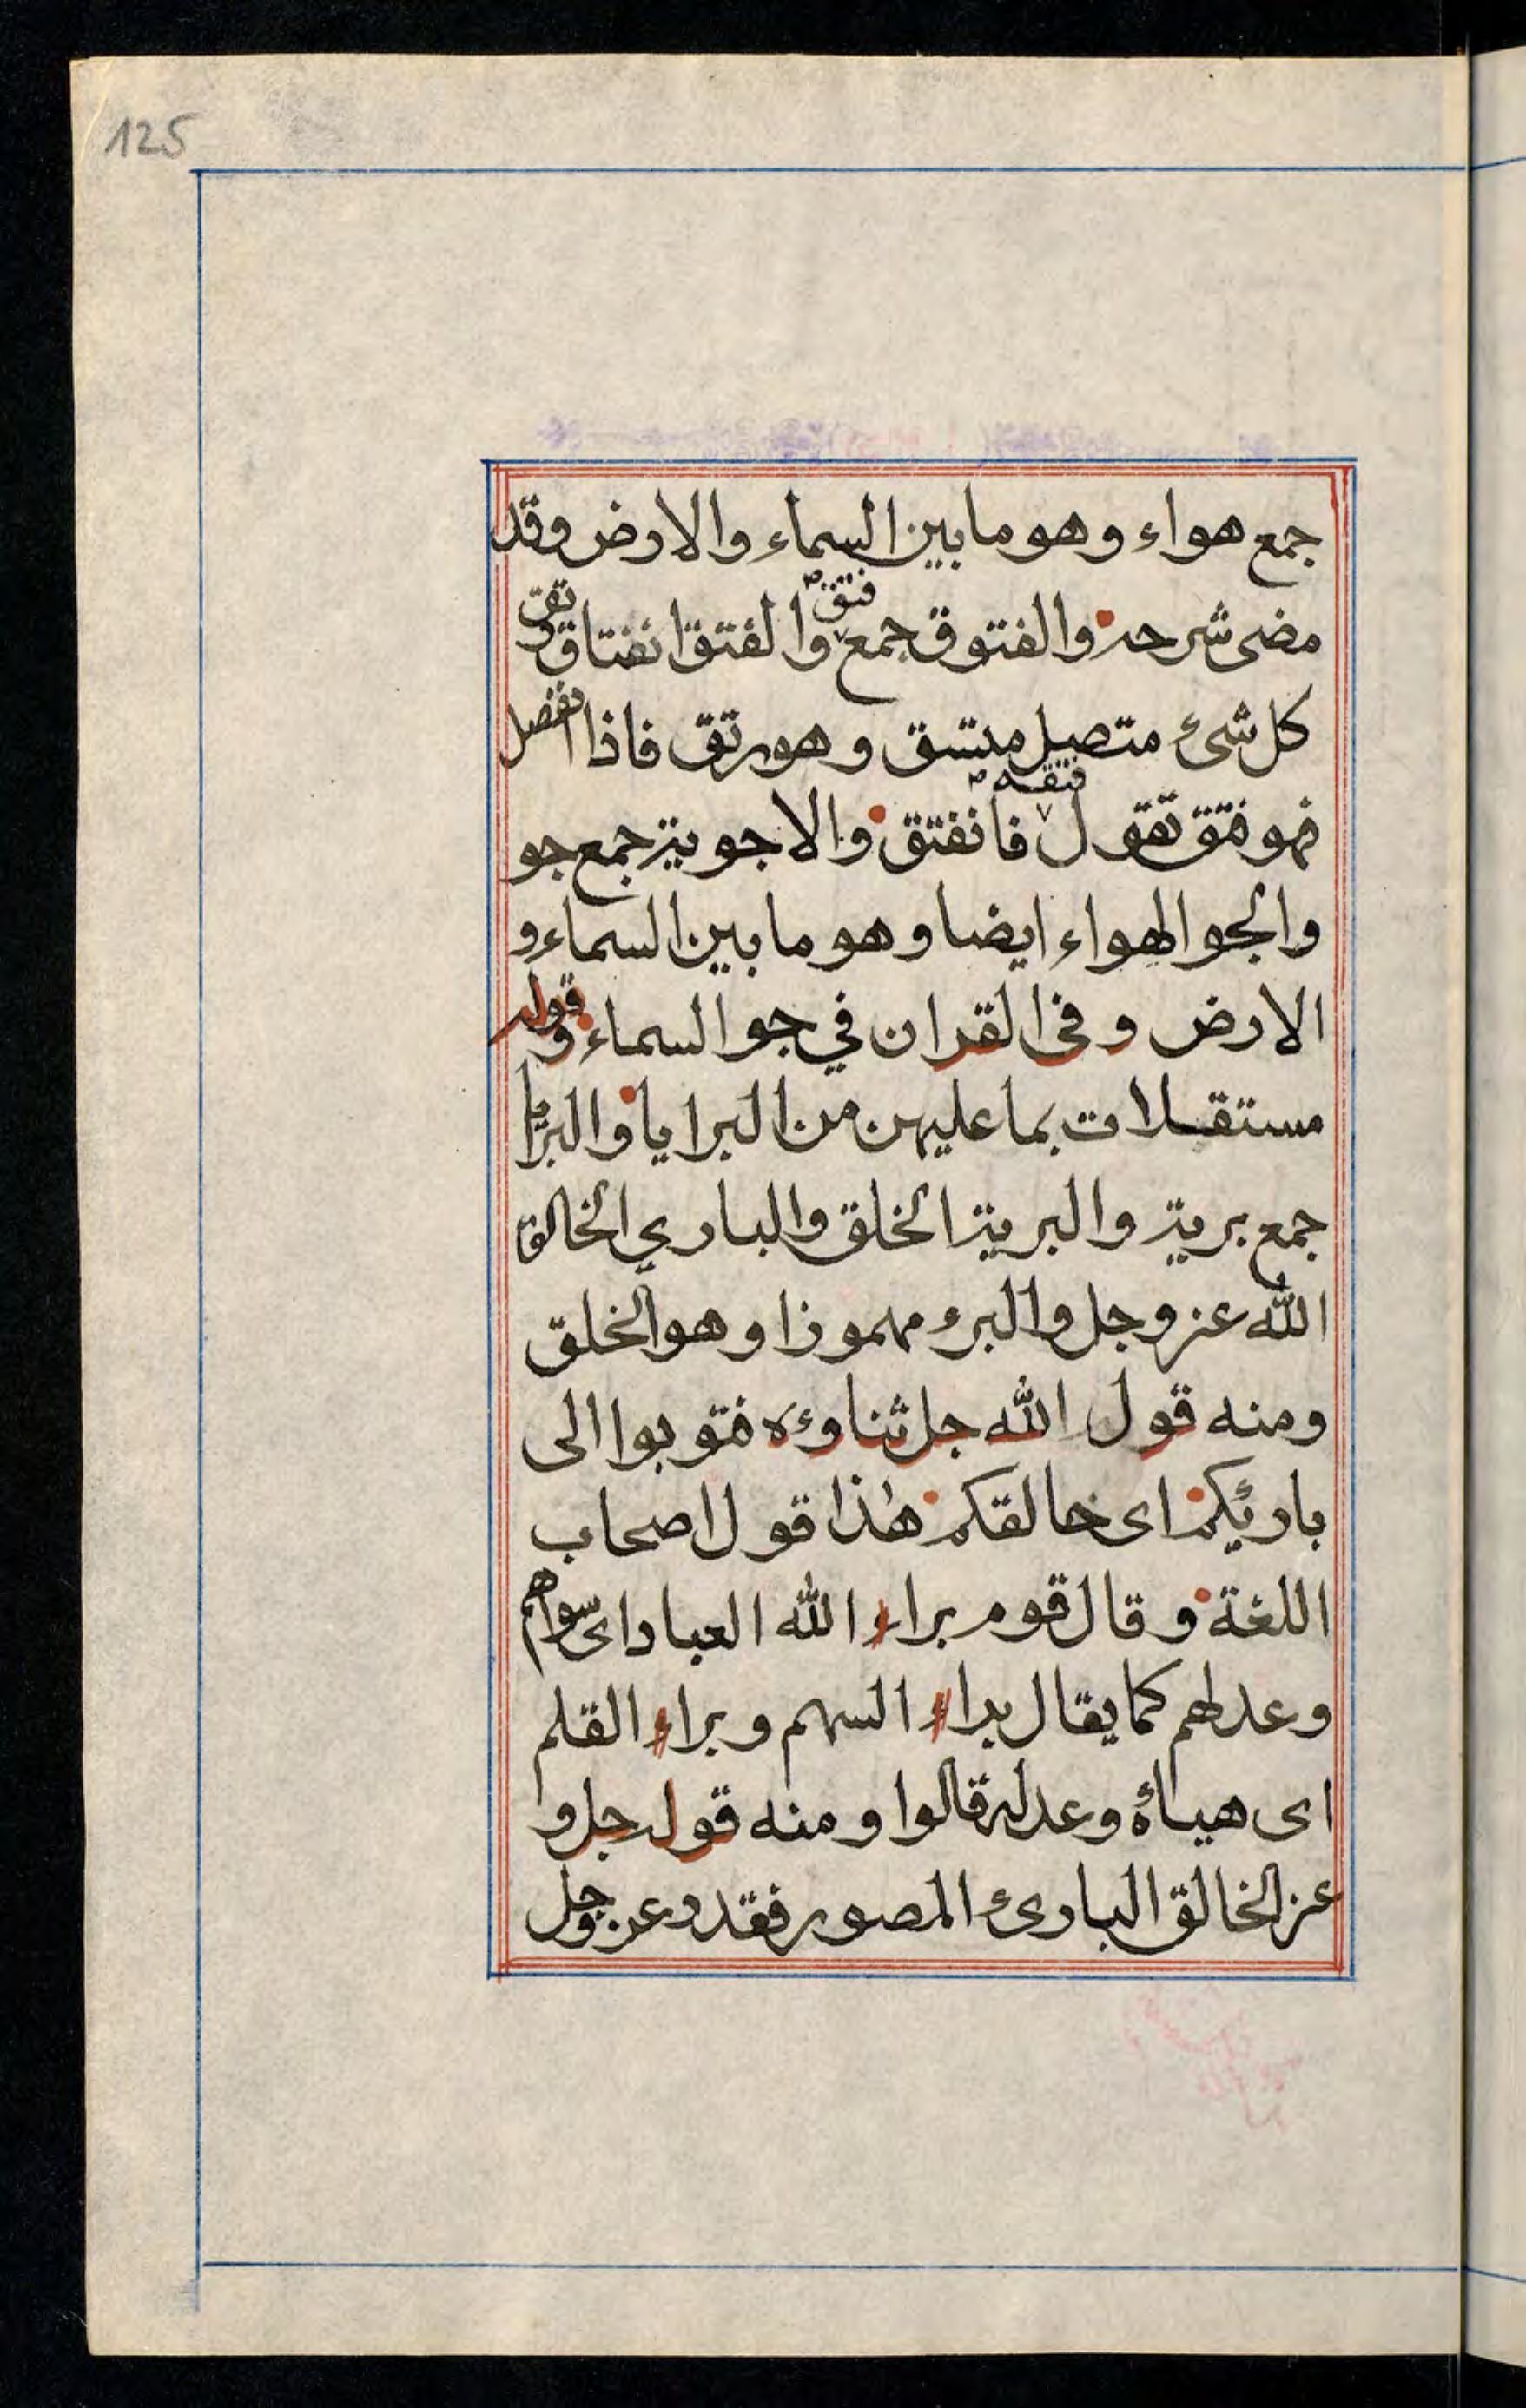 125
جمع هواء وهو ما بين السماء والارض وقد
مضى شرحه والفتوق جمع فتق والفتق انفتاق رتق
كل شئ متصل متسق وهو رتق فاذا انفصل
فهو فتق تقول فتقه فانفتق والاجوية جمع جو
والجو الهواء ايضا وهو ما بين السماء و
الارض وفى القران في جو السماء وقوله
مستقلات بما عليهن من البرايا والبرايا
جمع برية والبرية الخلق والباري الخالق
الله عز وجل والبرء مهموزا وهو الخلق
ومنه قول الله جل ثناوءه فتوبوا الى
بارئكم اى خالقكم هذا قول اصحاب
اللغة وقال قوم براء الله العباد اى سواهم
وعدلهم كما يقال براء السهم وبراء القلم
اى هيأه وعدله قالوا ومنه قوله جل و
عز الخالق البارئ المصور فقد وعز وجل